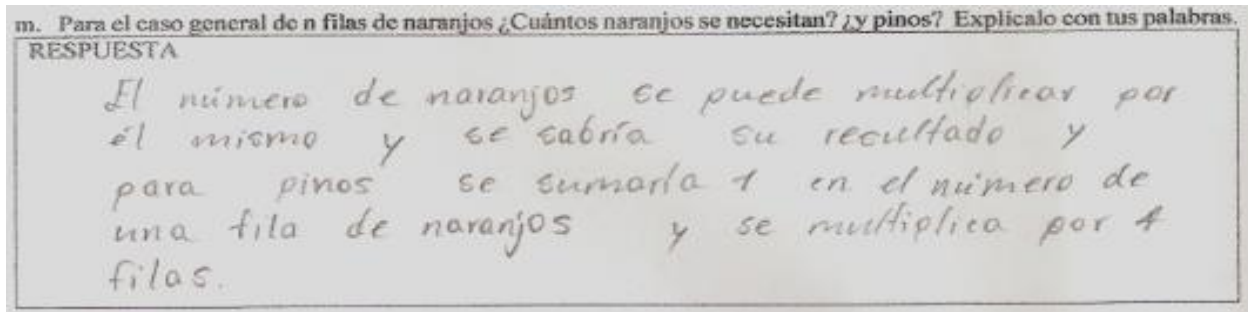 m. Para el caso general de n filas de naranjos ¿Cuántos naranjos se necesitan? ¿y pinos? Explícalo con tus palabras.
RESPUESTA
El número de naranjos se puede multiplicar por
él mismo y se sabría su resultado y
para pinos se sumaría 1 en el número de
una fila de naranjos y se multiplica por 4
filas.